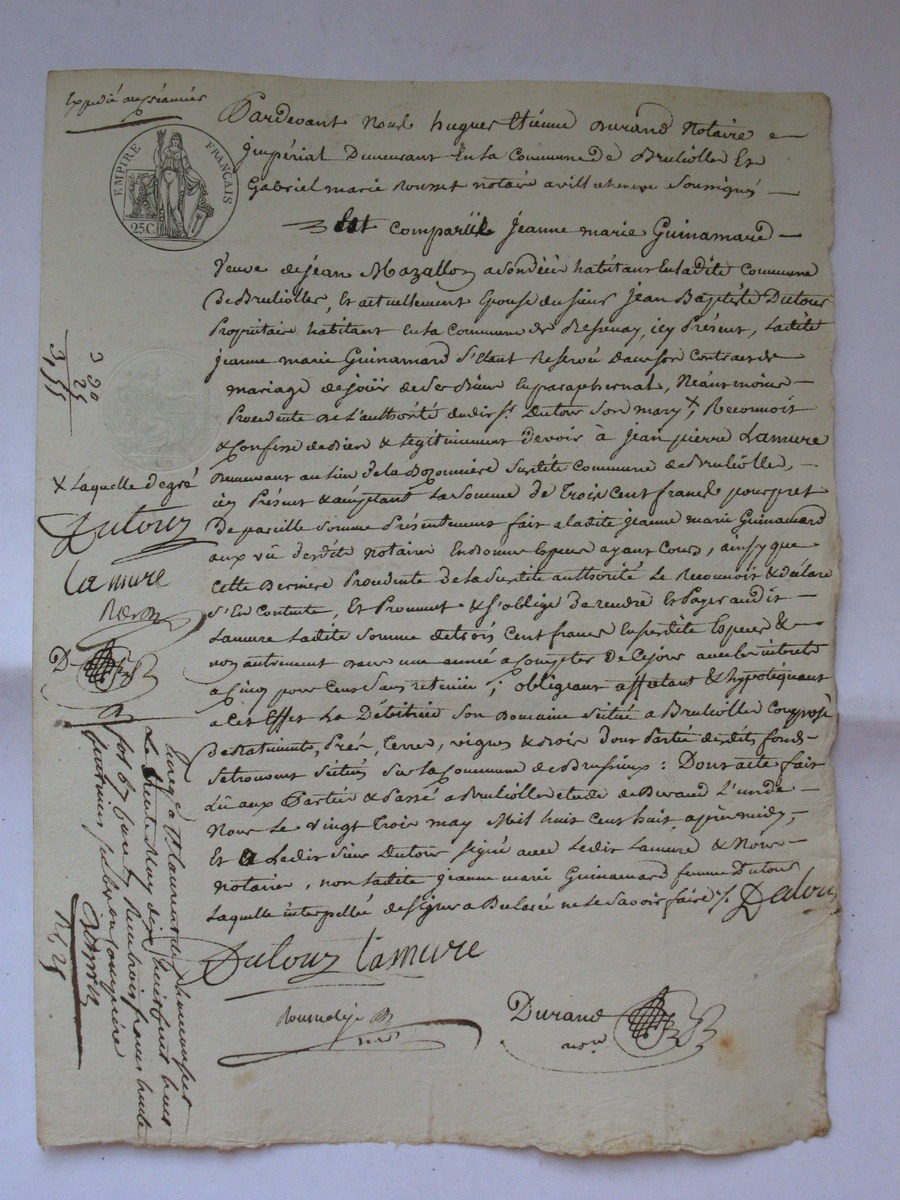 Expedié au créancier
EMPIRE FRANÇAIS
25C
Pardevant Nous hugues Etienne Durand Notaire
Jmpérial Demeurant En la Commune De Brullolles Et
Gabriel marie Rousset notaire a villecheneve Soussignés
Est Comparüe Jeanne marie Guinamard
Veuve de jean Mazallon a son décès habitant En ladite Commune
De Brullolles, Et actuellement Epouse du sieur Jean Baptiste Dutour
Propriétaire habitant En la Commune de Bessenay, icy Présent, Ladite
jeanne marie Guinamard S'étant Reservée dans son Contract de
mariage de joüir de Ses Biens En paraphernal, Néant moins
Procedente De L'authorité dudit Sr. Dutour Son mary x, Reconnoit
& Confesse de Bien & légitimement devoir à jean pierre Lamure
Demeurant au Lieu de la Susdite Commune de Brullolles,
icy Présent & acceptant La Somme de Trois Cent francs pour pret
De pareille Somme Présentement fait a ladite jeanne marie Guinamard
aux vüe desdits notaires En bonnes Espèces ayant Cours, ainsy que
Cette Derniere Procedente de la Susdite authorité Le Reconnoit & déclare
S'En Contente, Et Promet & s'oblige De rendre Et Payer audit
Lamure Ladite Somme de trois Cent francs En susdites Especes &
non autrement dans une année a Compter De Ce jour avec les intérets
a Cinq pour Cent Sans retenue ; obligeant affectant & hypotéquant
a Cet Effet La Débitrice Son Domaine Scitué a Brullolles Composé
de Batiments, Prés, Terres, vignes & Bois Dont Partie desdits fonds
Se trouvent Scitués Sur la Commune de Brussieux : Dont acte fait
Lû aux Parties & Passé a Brullolles étude de Durand L'un de
Nous Le vingt Trois may Mil huit Cent huit après midy,
Et a Ledit Sieur Dutour Signé avec Ledit Lamure & Nous
notaires, non Ladite jeanne marie Guinamard femme Dutour
Laquelle interpellée de signer a Declaré ne Le Savoir faire /. Dutour
Dutour Lamure
Durand
nore
3
20
25
3,55
x Laquelle de gré
Dutour
Lamure
D